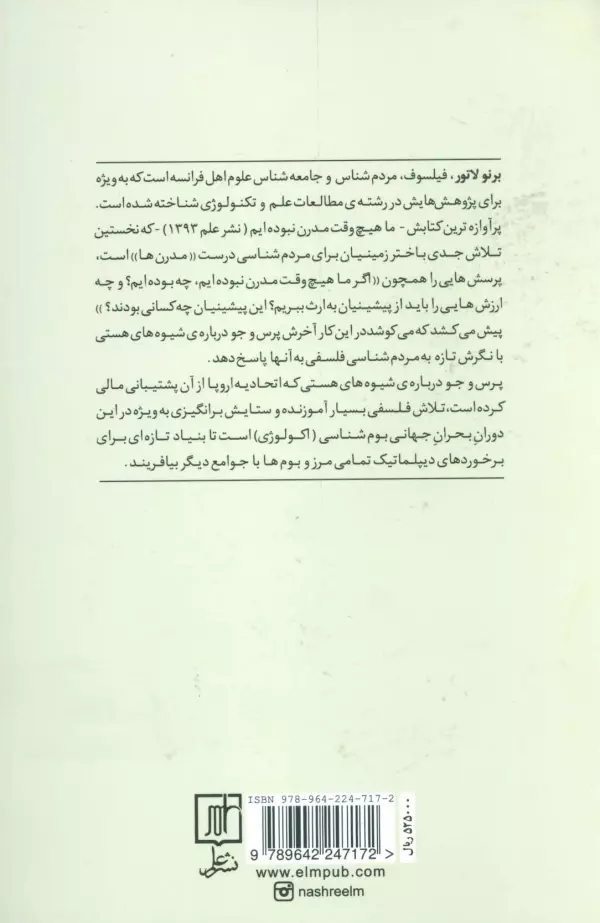 برنو لاتور، فیلسوف، مردم شناس و جامعه شناس علوم اهل فرانسه است که به ویژه
برای پژوهش‌هایش در رشته‌ی مطالعات علم و تکنولوژی شناخته شده است.
پرآوازه ترین کتابش - ما هیچ وقت مدرن نبوده ایم (نشر علم ۱۳۹۳) - که نخستین
تلاش جدی باختر زمینیان برای مردم شناسی درست «مدرن ها» است،
پرسش هایی را همچون «اگر ما هیچ وقت مدرن نبوده ایم، چه بوده ایم؟ و چه
ارزش هایی را باید از پیشینیان به ارث ببریم؟ این پیشینیان چه کسانی بودند؟»
پیش می کشد که می کوشد در این کار آخرش پرس و جو درباره ی شیوه های هستی
با نگرش تازه به مردم شناسی فلسفی به آنها پاسخ دهد.
پرس و جو درباره ی شیوه های هستی که اتحادیه اروپا از آن پشتیبانی مالی
کرده است، تلاش فلسفی بسیار آموزنده و ستایش برانگیزی به ویژه در این
دورانِ بحرانِ جهانی بوم شناسی (اکولوژی) است تا بنیاد تازه ای برای
برخوردهای دیپلماتیک تمامی مرز و بوم ها با جوامع دیگر بیافریند.
ISBN 978-964-224-717-2
9 789642 247172 >
۵۲۵۰۰۰ ریال
نشر علم
www.elmpub.com
nashreelm